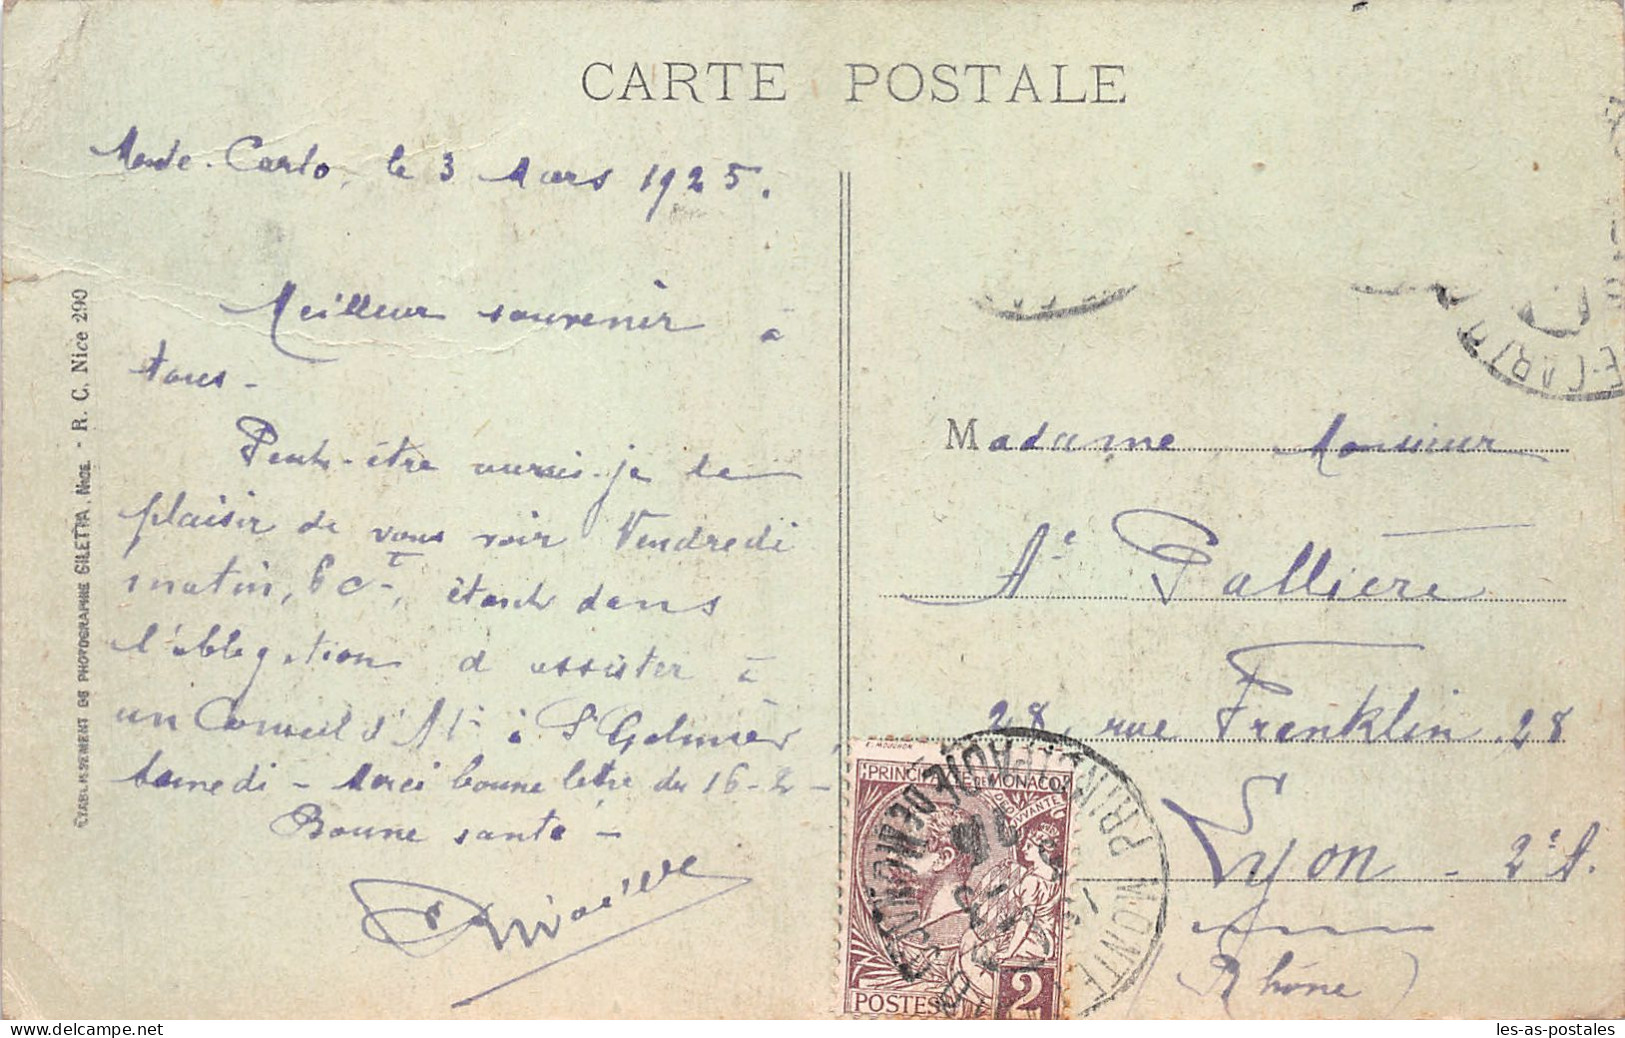 CARTE POSTALE
Monte-Carlo, le 3 Mars 1925.
Meilleur souvenir à
tous -
Peut-être aurais-je le
plaisir de vous voir Vendredi
matin, 6 ct, étant dans
l'obligation d'assister à
un Conseil d' à St Galmier,
samedi - Merci bonne lettre du 16-2-
Bonne santé -
ETABLISSEMENT DE PHOTOGRAPHIE GILETTA, NICE. - R. C. Nice 290
Madame Monsieur
Ae Pallière
28, rue Franklin, 28
Lyon - 2e A.
(Rhône)
PRINCIPAUTÉ DE MONACO
DEO JUVANTE
POSTES 2
E. MOUCHON
MONTE
PRINCIPAUTÉ DE MONACO
E-CARLO
www.delcampe.net
les-as-postales